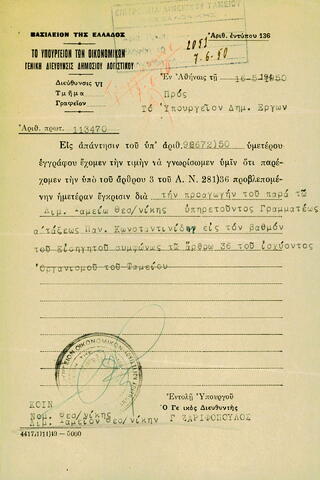 ΒΑΣΙΛΕΙΟΝ ΤΗΣ ΕΛΛΑΔΟΣ
ΤΟ ΥΠΟΥΡΓΕΙΟΝ ΤΩΝ ΟΙΚΟΝΟΜΙΚΩΝ
ΓΕΝΙΚΗ ΔΙΕΥΘΥΝΣΙΣ ΔΗΜΟΣΙΟΥ ΛΟΓΙΣΤΙΚΟΥ
Διεύθυνσις VI
Τμῆμα
Γραφεῖον
Ἀριθ. ἐντύπου 136
7-6-50
Ἐν Ἀθήναις τῇ 16-5-1950
Πρὸς
Τὸ Ὑπουργεῖον Δημ. Ἔργων
Ἀριθ. πρωτ. 113470
Εἰς ἀπάντησιν τοῦ ὑπ' ἀριθ. 92672)50 ὑμετέρου
ἐγγράφου ἔχομεν τὴν τιμὴν νὰ γνωρίσωμεν ὑμῖν ὅτι παρέ-
χομεν τὴν ὑπὸ τοῦ ἄρθρου 3 τοῦ Α. Ν. 281)36 προβλεπομέ-
νην ἡμετέραν ἔγκρισιν διὰ τὴν προαγωγήν τοῦ παρὰ τῷ
Δημ. Ταμείῳ Θεσ/νίκης ὑπηρετοῦντος Γραμματέως
α'τάξεως Παν. Κωνσταντινίδην εἰς τὸν βαθμὸν
τοῦ Εἰσηγητοῦ συμφώνως τῷ ἄρθρῳ 36 τοῦ ἰσχύοντος
Ὀργανισμοῦ τοῦ Ταμείου
Ἐντολῇ Ὑπουργοῦ
Ὁ Γενικὸς Διευθυντὴς
Γ ΖΑΡΙΦΟΠΟΥΛΟΣ
ΚΟΙΝ
Νομ. Θεσ/νίκης
Δημ. Ταμεῖον Θεσ/νίκην
4417)1)1)49 — 5000